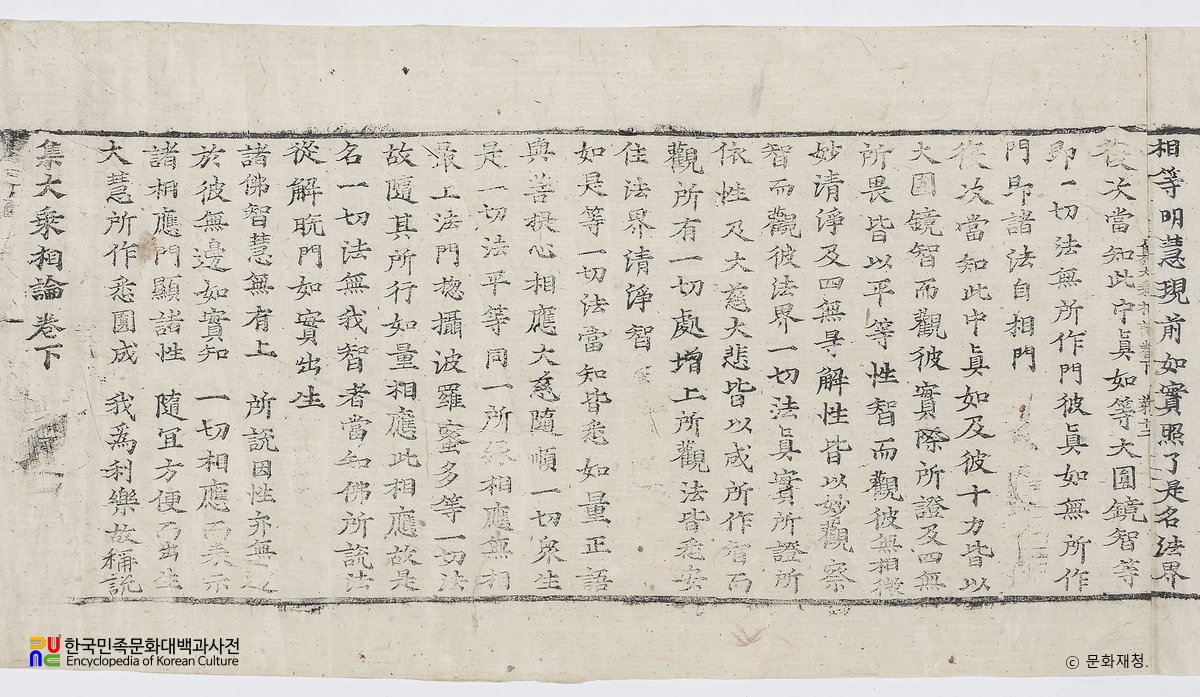 相等明慧現前如實照了是名法界
復次當知此中真如等大圓鏡智等
即一切法無所作門彼真如無所作
門即諸法自相門
復次當知此中真如及彼十方皆以
大圓鏡智而觀彼實際所證及四無
所畏皆以平等性智而觀彼無相微
妙清淨及四無㝵解性皆以妙觀察
智而觀彼法界一切法真實所證所
依性及大慈大悲皆以成所作智而
觀所有一切處增上所觀法皆悉安
住法界清淨智
如是等一切法當知皆悉如量正語
與菩提心相應大慈隨順一切衆生
是一切法平等同一所緣相應無相
最上法門揔攝波羅蜜多等一切法
故隨其所行如量相應此相應故是
名一切法無我智者當知佛所說法
從解脫門如實出生
諸佛智慧無有上 所說因性亦無
於彼無邊如實知 一切相應而表示
諸相應門顯諸性 隨宜方便而出生
大慧所作悉圓成 我爲利樂故稱說
集大乘相論卷下
한국민족문화대백과사전
Encyclopedia of Korean Culture
© 문화재청.